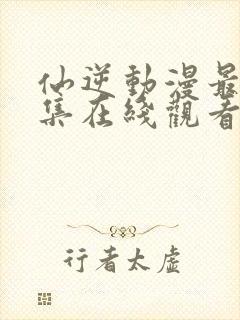 仙逆動漫最
集在綫觀看
行者太虛